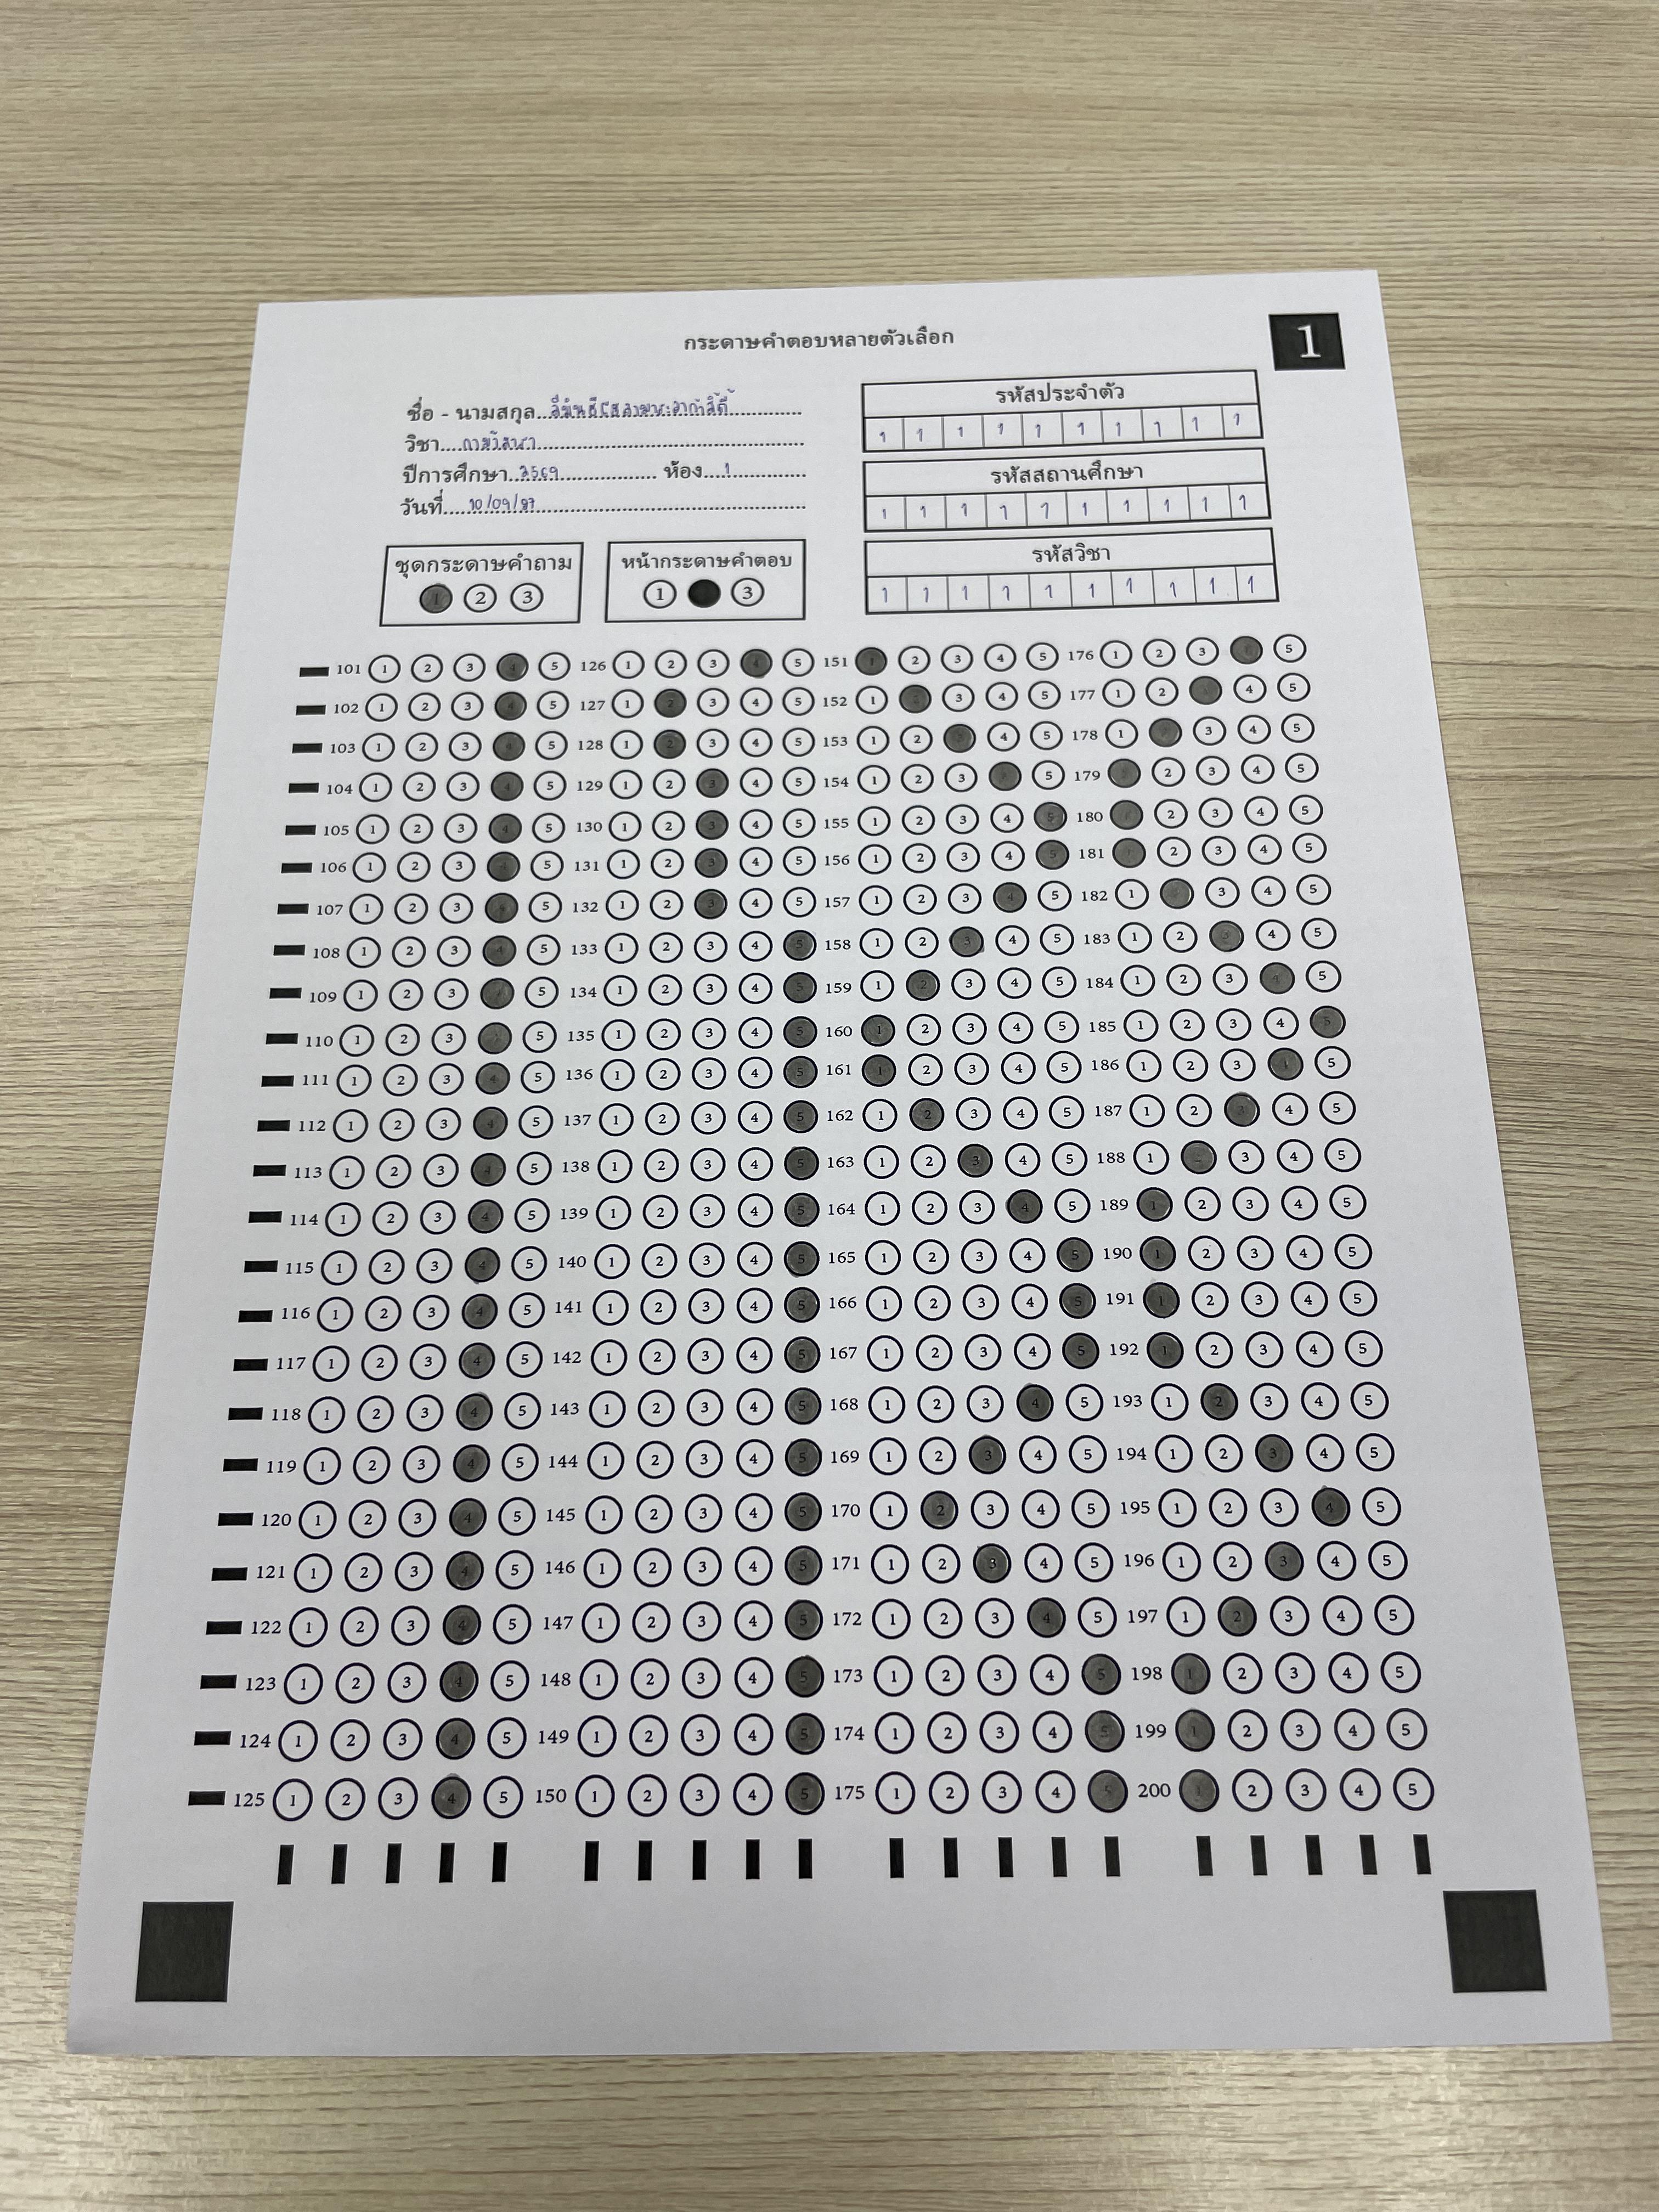 กระดาษคำตอบหลายตัวเลือก
1
ชื่อ - นามสกุล
วิชา
ปีการศึกษา 2569 ห้อง 1
วันที่ 10/09/97
รหัสประจำตัว
1 1 1 1 1 1 1 1 1 1
รหัสสถานศึกษา
1 1 1 1 1 1 1 1 1 1
รหัสวิชา
1 1 1 1 1 1 1 1 1 1
ชุดกระดาษคำถาม
1 2 3
หน้ากระดาษคำตอบ
1 3
101 1 2 3 4 5 126 1 2 3 4 5 151 1 2 3 4 5 176 1 2 3 4 5
102 1 2 3 4 5 127 1 2 3 4 5 152 1 2 3 4 5 177 1 2 3 4 5
103 1 2 3 4 5 128 1 2 3 4 5 153 1 2 3 4 5 178 1 2 3 4 5
104 1 2 3 4 5 129 1 2 3 4 5 154 1 2 3 4 5 179 1 2 3 4 5
105 1 2 3 4 5 130 1 2 3 4 5 155 1 2 3 4 5 180 1 2 3 4 5
106 1 2 3 4 5 131 1 2 3 4 5 156 1 2 3 4 5 181 1 2 3 4 5
107 1 2 3 4 5 132 1 2 3 4 5 157 1 2 3 4 5 182 1 2 3 4 5
108 1 2 3 4 5 133 1 2 3 4 5 158 1 2 3 4 5 183 1 2 3 4 5
109 1 2 3 4 5 134 1 2 3 4 5 159 1 2 3 4 5 184 1 2 3 4 5
110 1 2 3 4 5 135 1 2 3 4 5 160 1 2 3 4 5 185 1 2 3 4 5
111 1 2 3 4 5 136 1 2 3 4 5 161 1 2 3 4 5 186 1 2 3 4 5
112 1 2 3 4 5 137 1 2 3 4 5 162 1 2 3 4 5 187 1 2 3 4 5
113 1 2 3 4 5 138 1 2 3 4 5 163 1 2 3 4 5 188 1 2 3 4 5
114 1 2 3 4 5 139 1 2 3 4 5 164 1 2 3 4 5 189 1 2 3 4 5
115 1 2 3 4 5 140 1 2 3 4 5 165 1 2 3 4 5 190 1 2 3 4 5
116 1 2 3 4 5 141 1 2 3 4 5 166 1 2 3 4 5 191 1 2 3 4 5
117 1 2 3 4 5 142 1 2 3 4 5 167 1 2 3 4 5 192 1 2 3 4 5
118 1 2 3 4 5 143 1 2 3 4 5 168 1 2 3 4 5 193 1 2 3 4 5
119 1 2 3 4 5 144 1 2 3 4 5 169 1 2 3 4 5 194 1 2 3 4 5
120 1 2 3 4 5 145 1 2 3 4 5 170 1 2 3 4 5 195 1 2 3 4 5
121 1 2 3 4 5 146 1 2 3 4 5 171 1 2 3 4 5 196 1 2 3 4 5
122 1 2 3 4 5 147 1 2 3 4 5 172 1 2 3 4 5 197 1 2 3 4 5
123 1 2 3 4 5 148 1 2 3 4 5 173 1 2 3 4 5 198 1 2 3 4 5
124 1 2 3 4 5 149 1 2 3 4 5 174 1 2 3 4 5 199 1 2 3 4 5
125 1 2 3 4 5 150 1 2 3 4 5 175 1 2 3 4 5 200 1 2 3 4 5